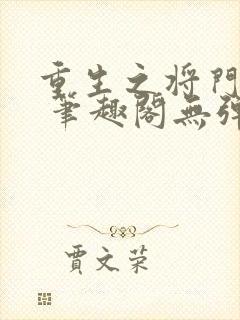 重生之将門
筆趣閣無彈
賈文荣